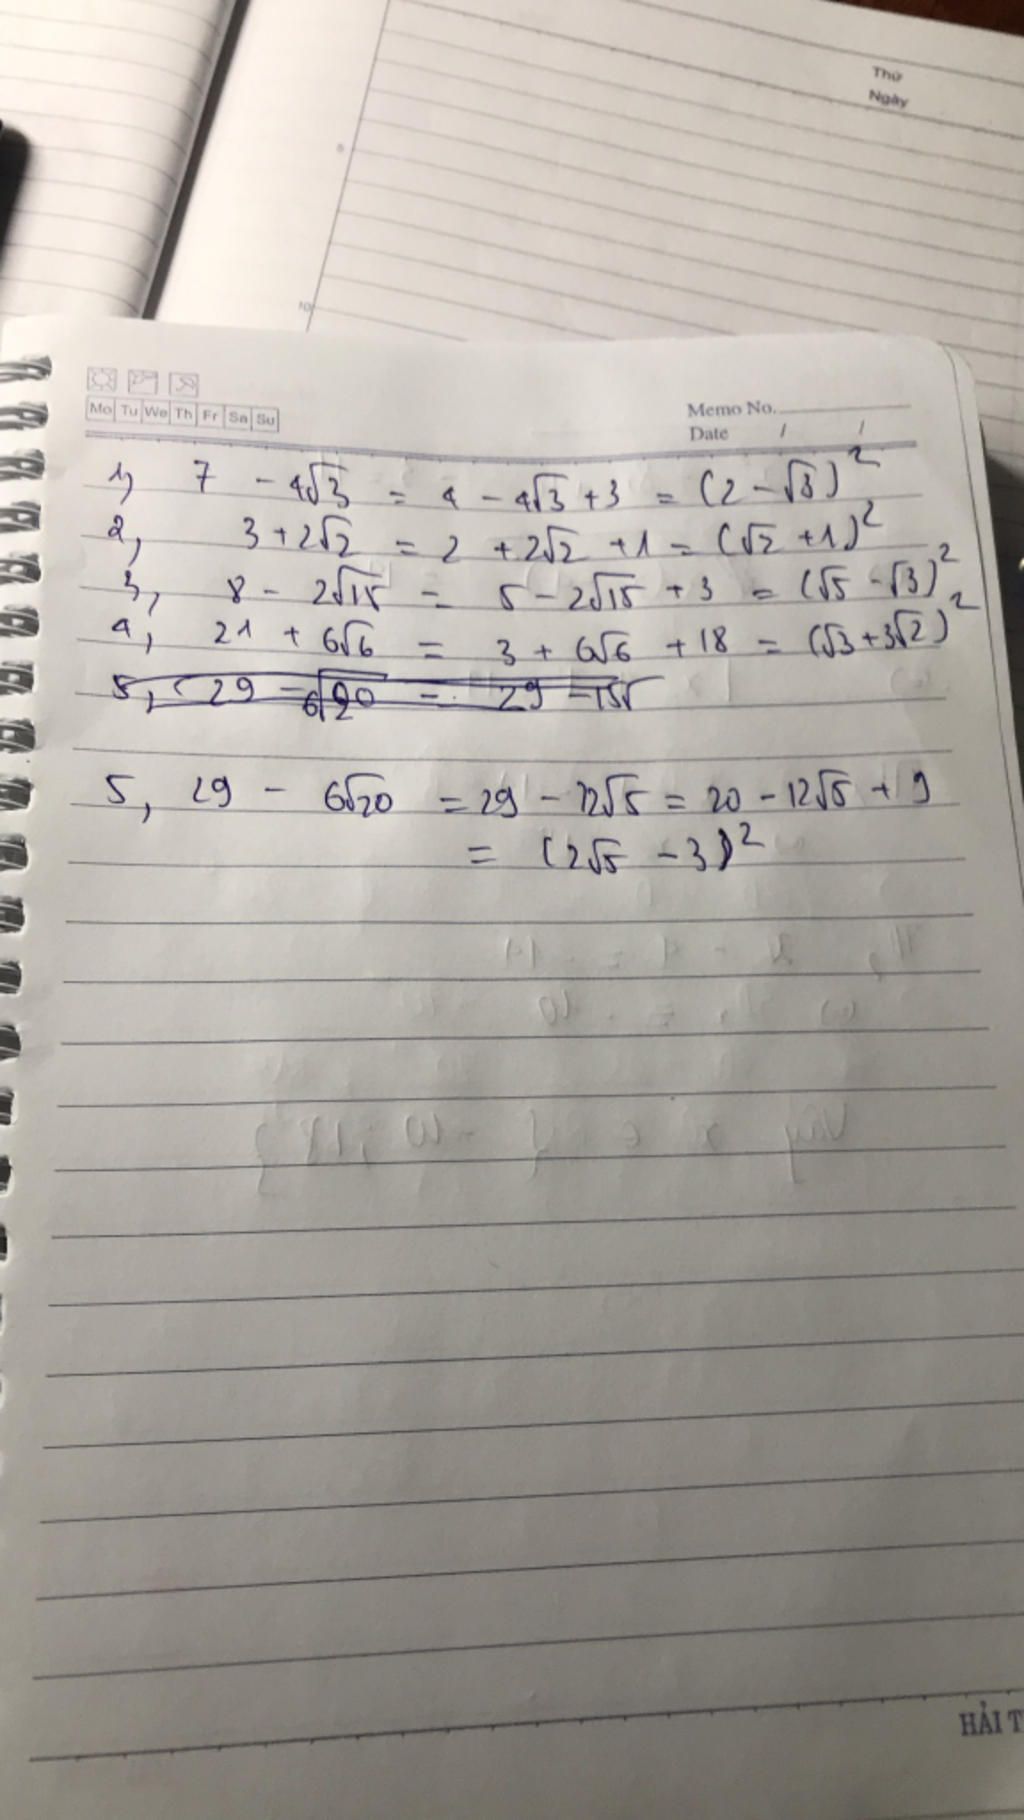 Thứ
Ngày
5
10
Mo Tu We Th Fr Sa Su
Memo No.
Date / /
1, 7 - 4√3 = 4 - 4√3 + 3 = (2 - √3)²
2, 3 + 2√2 = 2 + 2√2 + 1 = (√2 + 1)²
3, 8 - 2√15 = 5 - 2√15 + 3 = (√5 - √3)²
4, 21 + 6√6 = 3 + 6√6 + 18 = (√3 + 3√2)²
5, 29 - 6√20 = 29 -
5, 29 - 6√20 = 29 - 12√5 = 20 - 12√5 + 9
= (2√5 - 3)²
HẢI T